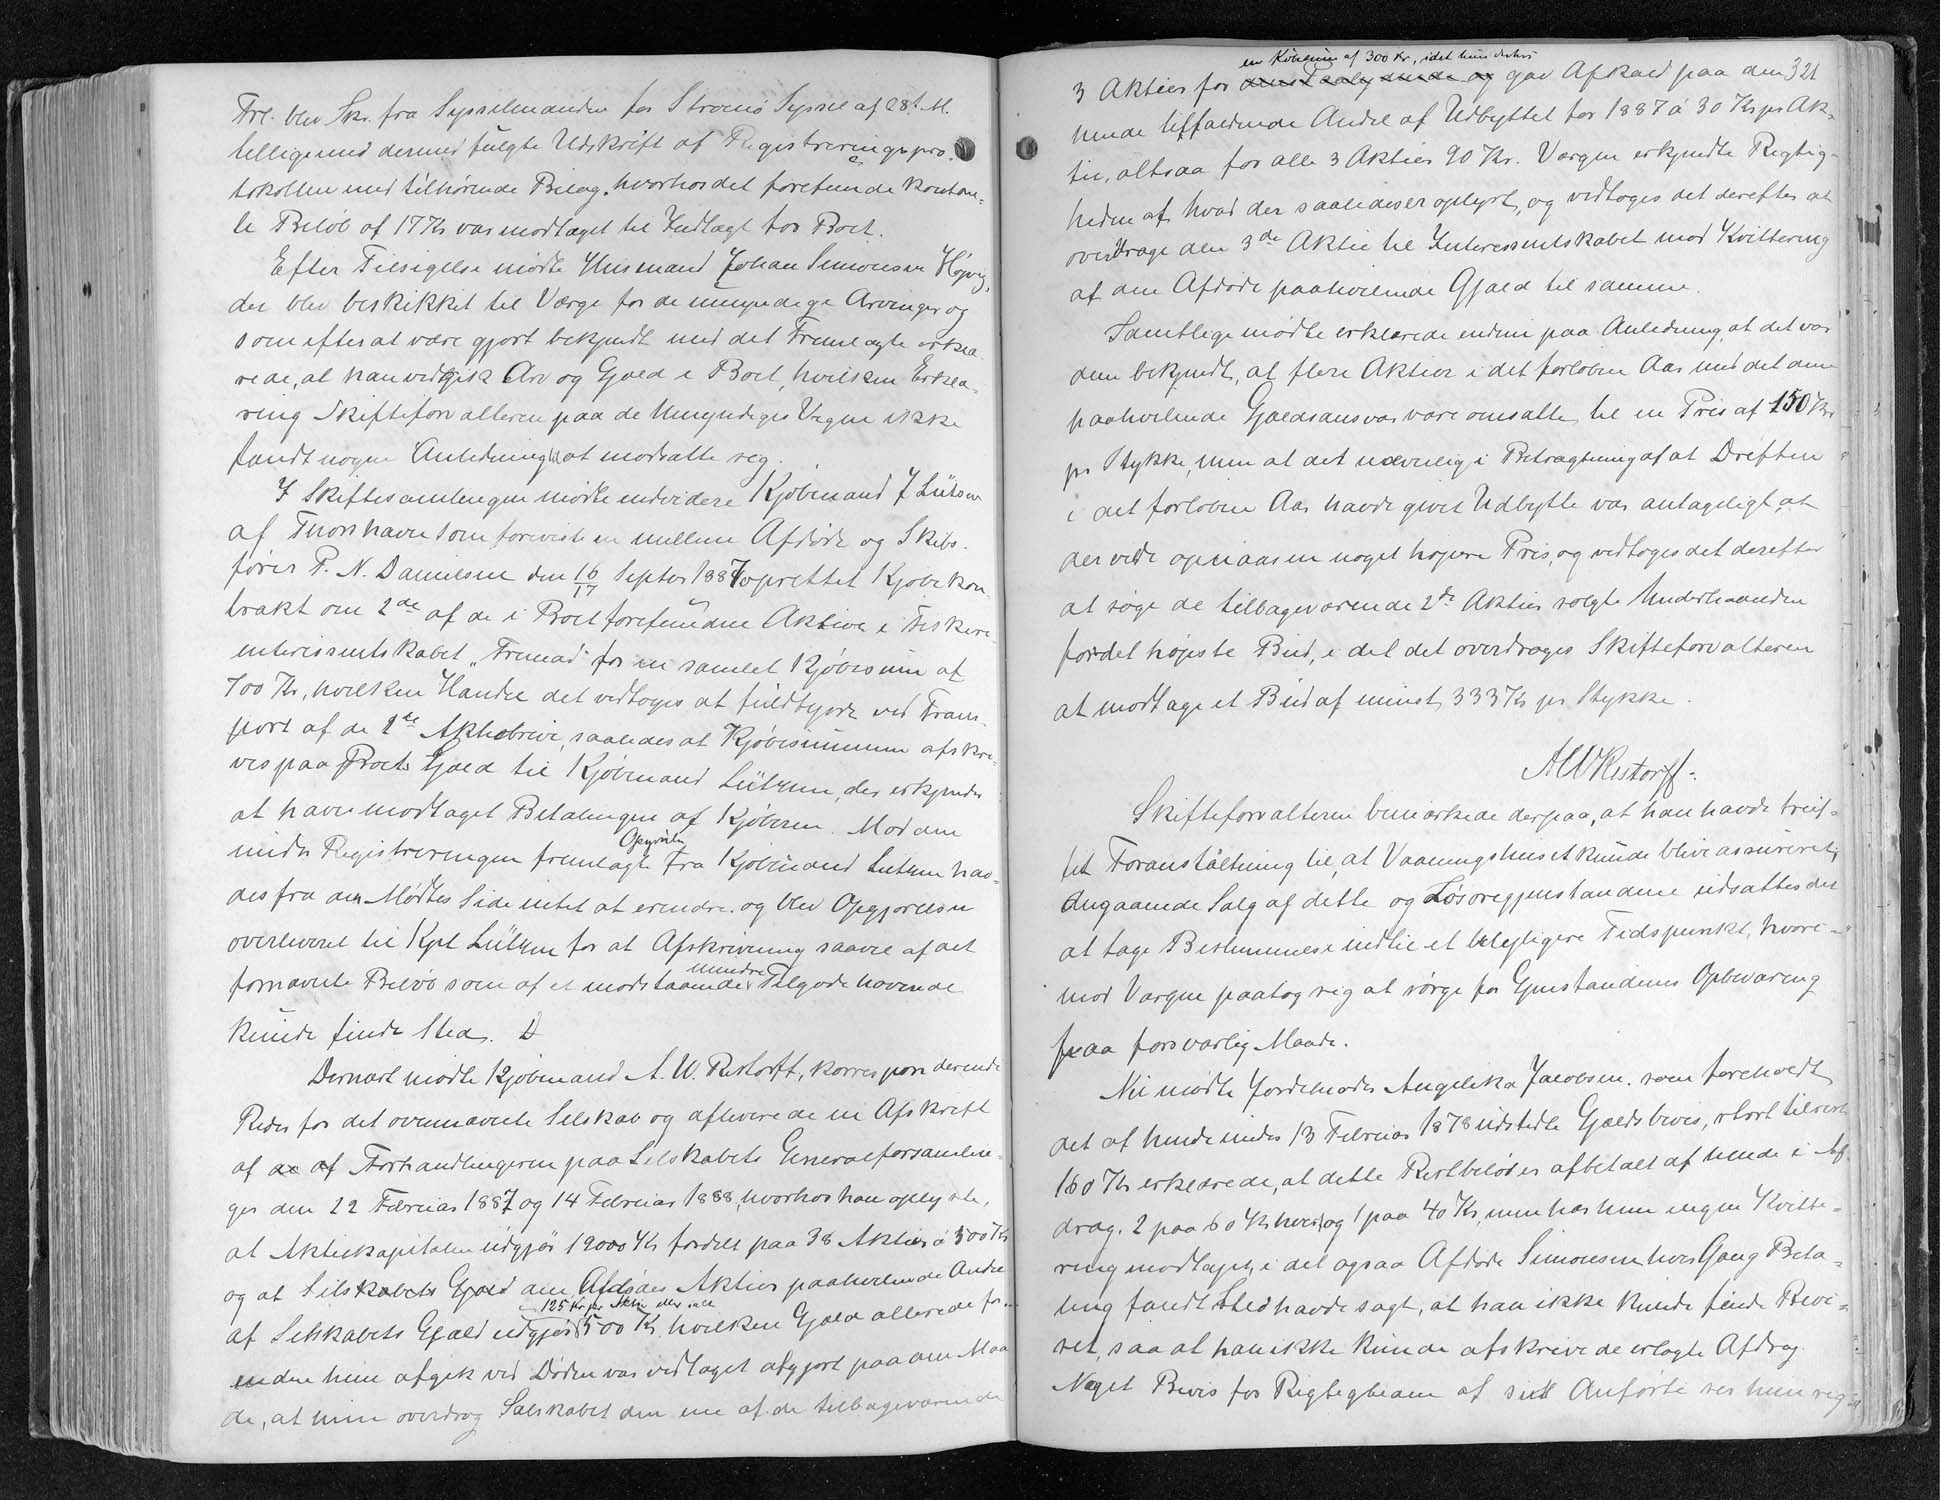 Frl. blev Skr. fra Sysselmanden for Strømø Syssel af 28 d. M.
tilligemed dermed fulgte Udskrift af Registreringspro-
tokollen med tilhørende Bilag, hvorhos det forefundne kontan-
te Beløb af 17 Kr var modtaget til Indtægt for Boet.
Efter Tilsigelse mødte Husmand Johan Simonsen Højvig,
der blev beskikket til Værge for de umyndige Arvinger og
som efter at være gjort bekjendt med det Fremlagte erklæ-
rede, at han vedgik Arv og Gjæld i Boet, hvilken Erklæ-
ring Skifteforvalteren paa de Umyndiges Vegne ikke
fandt nogen Anledning til at modsætte sig.
I Skiftesamlingen mødte endvidere Kjøbmand J Lützen
af Thorshavn som foreviste en mellem Afdøde og Skibs-
fører P. N. Danielsen den 16/17 Septbr 1887 oprettet Kjøbekon
trakt om 2de af de i Boet forefundne Aktier i Fiskeri-
interessentskabet „Fremad" for en samlet Kjøbesum af
700 Kr, hvilken Handel det vedtoges at fuldbyrde ved Trans-
port af de 2de Aktiebreve, saaledes at Kjøbesummen afskri-
ves paa Boets Gjæld til Kjøbmand Lützen, der erkjender
at have modtaget Betalingen af Kjøberen. Mod den
under Registreringen fremlagte Opgjørelse fra Kjøbmand Lützen hav-
des fra den Mødtes Side intet at erindre, og blev Opgjørelsen
overleveret til Kjøbmand Lützen for at Afskrivning saavel af det
fornævnte Beløb som af et modstaaende mindre Tilgodehavende
kunde finde Sted.
Dernæst mødte Kjøbmand A. W. Restorff, korresponderende
Reder for det ovennævnte Selskab og afleverede en Afskrift
af Forhandlingerne paa Selskabets Generalforsamlin-
ger den 22 Februar 1887 og 14 Februar 1888, hvorhos han oplyste,
at Aktiekapitalen udgjør 19000 Kr fordelt paa 38 Aktier á 500 Kr
og at Selskabets Gjæld den Afdødes Aktier paahvilende Andel
af Selskabets Gjæld udgjør 125 Kr pr Aktie eller ialt 500 Kr, hvilken Gjæld allerede for-
inden hun afgik ved Døden var vedtaget afgjort paa den Maa
de, at hun overdrog Selskabet den ene af de tilbageværende
321
3 Aktier for en Købesum af 300 Kr, idet hun derhos gav Afkald paa den
hende tilfaldende Andel af Udbyttet for 1887 á 30 Kr pr Ak-
tie, altsaa for alle 3 Aktier 90 Kr. Værgen erkjendte Rigtig-
heden af hvad der saaledes er oplyst, og vedtoges det derefter at
overdrage den 3de Aktie til Interessentskabet mod Kvittering
af den Afdøde paahvilende Gjæld til samme.
Samtlige mødte erklærede endnu paa Anledning, at det var
dem bekjendt, at flere Aktier i det forløbne Aar med det dem
paahvilende Gjældsansvar vare omsatte til en Pris af 150 Kr
pr Stykke, men at det navnlig i Betragtning af at Driften
i det forløbne Aar havde givet Udbytte var antageligt, at
der vilde opnaaes en noget højere Pris, og vedtoges det derefter
at søge de tilbageværende 2de Aktier solgte Underhaanden
for det højeste Bud, idet det overdroges Skifteforvalteren
at modtage et Bud af mindst 333 Kr pr Stykke.
A W Restorff.
Skifteforvalteren bemærkede derpaa, at han havde truf-
fet Foranstaltning til, at Vaaningshuset kunde blive assureret;
Angaaende Salg af dette og Løsøregjenstandene udsattes det
at tage Bestemmelse indtil et belejligere Tidspunkt, hvori-
mod Værgen paatog sig at sørge for Gjenstandenes Opbevaring
paa forsvarlig Maade.
Nu mødte Jordemoder Angelika Jacobsen, som foreholdt
det af hende under 13 Februar 1878 udstedte Gjældsbevis, stort tilrest
160 Kr erklærede, at dette Restbeløb er afbetalt af hende i Af-
drag, 2 paa 60 Kr hver, og 1 paa 40 Kr, men har hun ingen Kvitte-
ring modtaget, idet ogsaa Afdøde Simonsen hver Gang Beta-
ling fandt Sted havde sagt, at han ikke kunde finde Bevi-
set, saa at han ikke kunde afskrive de erlagte Afdrag.
Noget Bevis for Rigtigheden af sit Anførte ser hun sig